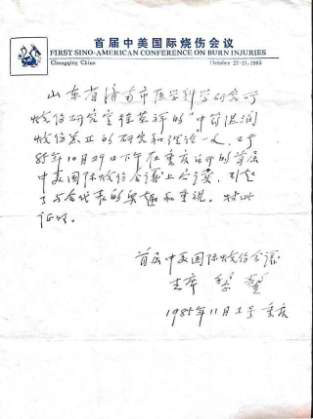 首届中美国际烧伤会议
FIRST SINO-AMERICAN CONFERENCE ON BURN INJURIES
Chongqing China October 27-31, 1985
山东省济南市医学科学研究所
烧伤研究室徐荣祥的"中药湿润
烧伤膏的研究和理论一文,于
85年10月29日下午在重庆召开的首届
中美国际烧伤会议上公布,引起
了与会代表的兴趣和重视。特此
证明。
首届中美国际烧伤会议
主席 黎鳌
1985年11月1号 重庆